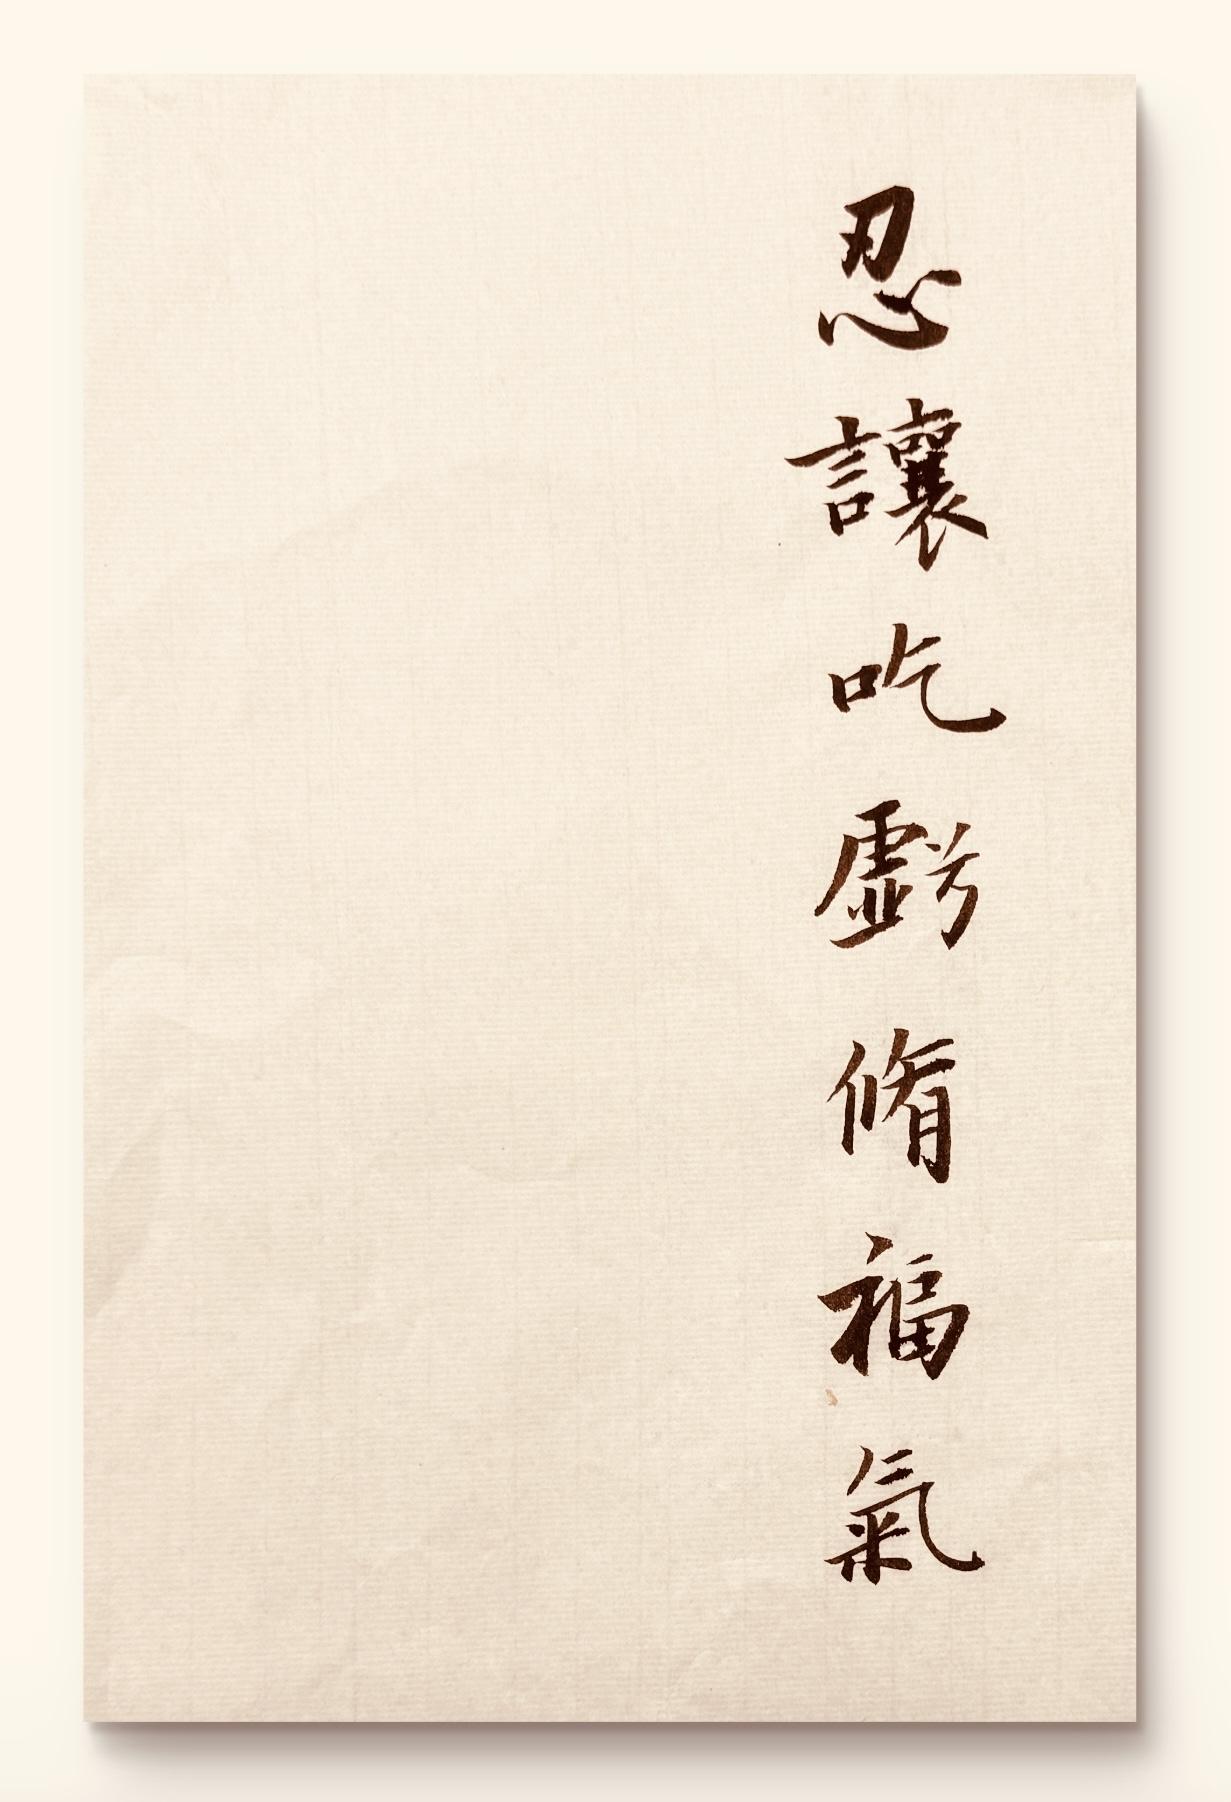 忍讓吃虧脩福氣